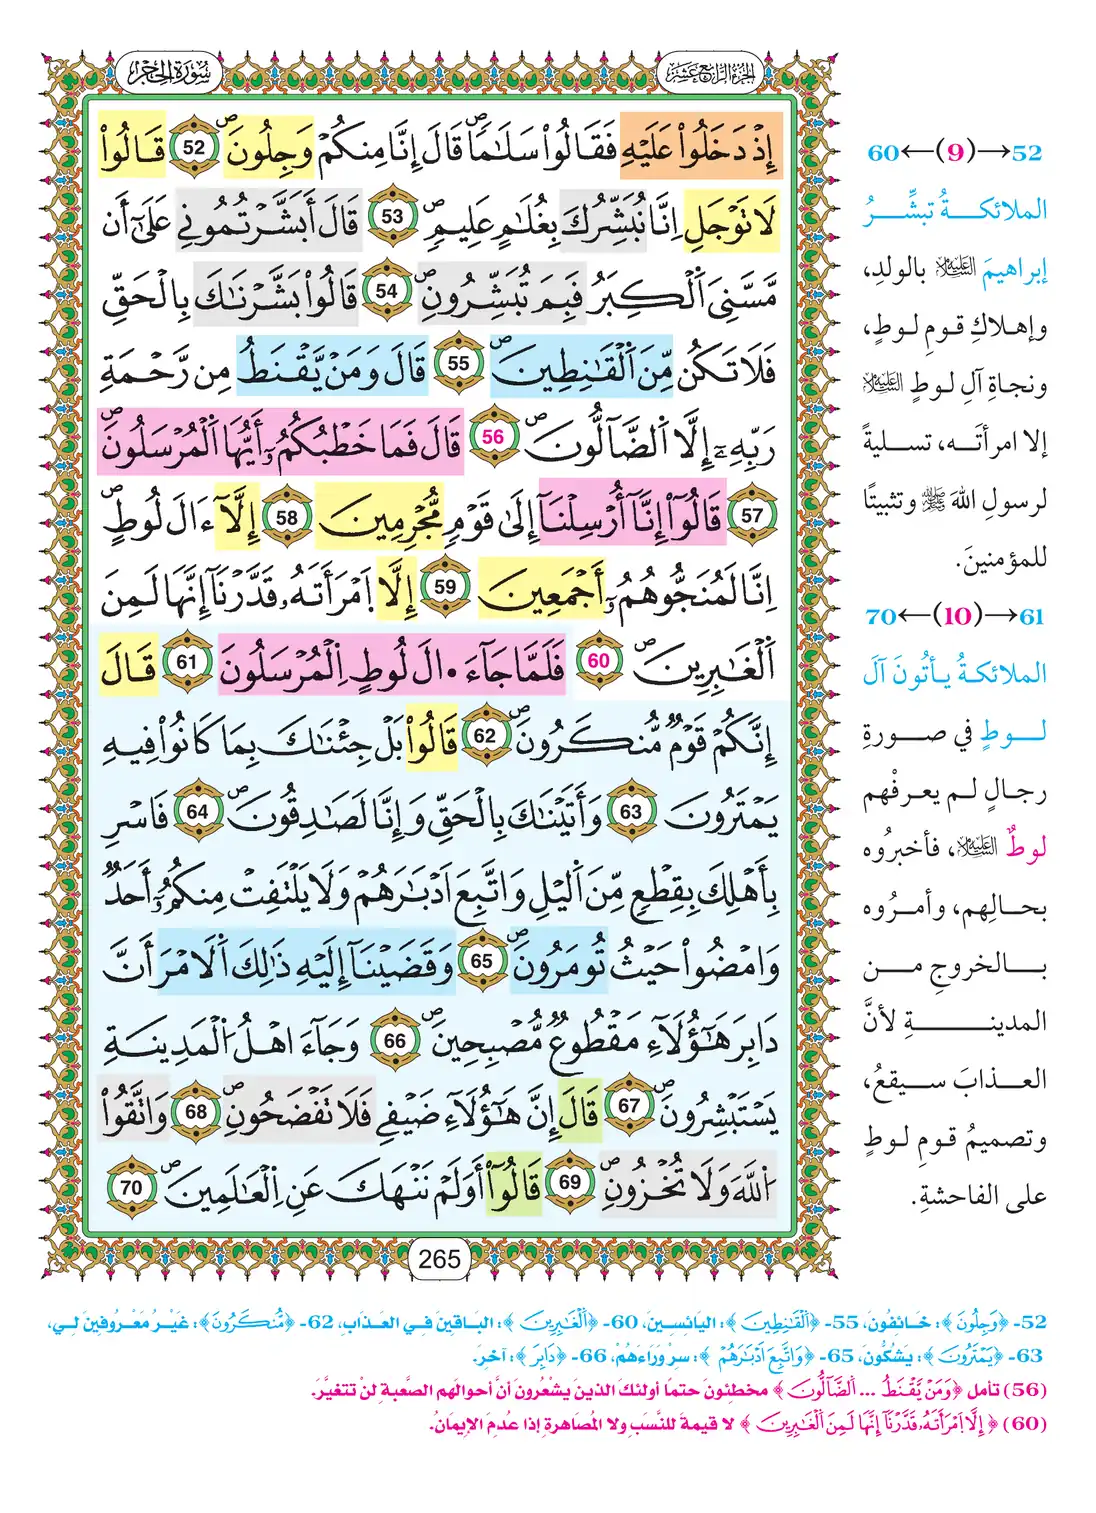 الجزء الرابع عشر
سورة الحجر
إِذْ دَخَلُواْ عَلَيْهِ فَقَالُواْ سَلَٰمٗاۖ قَالَ إِنَّا مِنكُمْ وَجِلُونَۖ 52 قَالُواْ
لَا تَوْجَلِ اِنَّا نُبَشِّرُكَ بِغُلَٰمٍ عَلِيمٖۖ 53 قَالَ أَبَشَّرْتُمُونِي عَلَىٰ أَن
مَّسَّنِيَ اَ۬لْكِبَرُ فَبِمَ تُبَشِّرُونِۖ 54 قَالُواْ بَشَّرْنَٰكَ بِالْحَقِّ
فَلَا تَكُن مِّنَ اَ۬لْقَٰنِطِينَۖ 55 قَالَ وَمَنْ يَّقْنَطُ مِن رَّحْمَةِ
رَبِّهِۦٓ إِلَّا اَ۬لضَّآلُّونَۖ 56 قَالَ فَمَا خَطْبُكُمُۥٓ أَيُّهَا اَ۬لْمُرْسَلُونَۖ
57 قَالُوٓاْ إِنَّآ أُرْسِلْنَآ إِلَىٰ قَوْمٖ مُّجْرِمِينَ 58 إِلَّآ ءَالَ لُوطٍ
اِنَّا لَمُنَجُّوهُمُۥٓ أَجْمَعِينَ 59 إِلَّا اَ۪مْرَأَتَهُۥ قَدَّرْنَآ إِنَّهَا لَمِنَ
اَ۬لْغَٰبِرِينَۖ 60 فَلَمَّا جَآءَ ا۬لَ لُوطٍ اِ۬لْمُرْسَلُونَ 61 قَالَ
إِنَّكُمْ قَوْمٞ مُّنكَرُونَۖ 62 قَالُواْ بَلْ جِئْنَٰكَ بِمَا كَانُواْ فِيهِ
يَمْتَرُونَ 63 وَأَتَيْنَٰكَ بِالْحَقِّ وَإِنَّا لَصَٰدِقُونَۖ 64 فَاسْرِ
بِأَهْلِكَ بِقِطْعٖ مِّنَ اَ۬ليْلِ وَاتَّبِعَ اَدْبَٰرَهُمْ وَلَا يَلْتَفِتْ مِنكُمُۥٓ أَحَدٞ
وَامْضُواْ حَيْثُ تُومَرُونَۖ 65 وَقَضَيْنَآ إِلَيْهِ ذَٰلِكَ اَ۬لَامْرَ أَنَّ
دَابِرَ هَٰٓؤُلَآءِ مَقْطُوعٞ مُّصْبِحِينَۖ 66 وَجَآءَ اهْلُ اُ۬لْمَدِينَةِ
يَسْتَبْشِرُونَۖ 67 قَالَ إِنَّ هَٰٓؤُلَآءِ ضَيْفِي فَلَا تَفْضَحُونِۖ 68 وَاتَّقُواْ
اُ۬للَّهَ وَلَا تُخْزُونِۖ 69 قَالُوٓاْ أَوَلَمْ نَنْهَكَ عَنِ اِ۬لْعَٰلَمِينَۖ 70
265
52→(9)←60
الملائكةُ تبشِّرُ
إبراهيمَ عليه السلام بالولدِ،
وإهلاكِ قومِ لوطٍ،
ونجاةِ آلِ لوطٍ عليه السلام
إلا امرأتَه، تسليةً
لرسولِ اللهِ ﷺ وتثبيتًا
للمؤمنينَ.
61→(10)←70
الملائكةُ يأتُونَ آلَ
لوطٍ في صورةِ
رجالٍ لم يعرفْهم
لوطٌ عليه السلام، فأخبرُوه
بحالِهم، وأمرُوه
بالخروجِ من
المدينةِ لأنَّ
العذابَ سيقعُ،
وتصميمُ قومِ لوطٍ
على الفاحشةِ.
52- ﴿وَجِلُونَ﴾: خَائِفُونَ، 55- ﴿اَلْقَٰنِطِينَ﴾: اليَائِسِينَ، 60- ﴿اَلْغَٰبِرِينَ﴾: البَاقِينَ فِي العَذَابِ، 62- ﴿مُّنكَرُونَ﴾: غَيْرُ مَعْرُوفِينَ لِي،
63- ﴿يَمْتَرُونَ﴾: يَشُكُّونَ، 65- ﴿وَاتَّبِعَ اَدْبَٰرَهُمْ﴾: سِرْ وَرَاءَهُمْ، 66- ﴿دَابِرَ﴾: آخِرَ.
(56) تأمل ﴿وَمَنْ يَّقْنَطُ ... اَلضَّآلُّونَ﴾ مخطئون حتمًا أولئكَ الذينَ يشعُرونَ أنَّ أحوالَهم الصَّعبةَ لنْ تتغيَّرَ.
(60) ﴿إِلَّا اَمْرَأَتَهُۥ قَدَّرْنَآ إِنَّهَا لَمِنَ اَلْغَٰبِرِينَ﴾ لا قيمةَ للنَّسَبِ ولا المُصاهرةِ إذا عُدمَ الإيمَانُ.